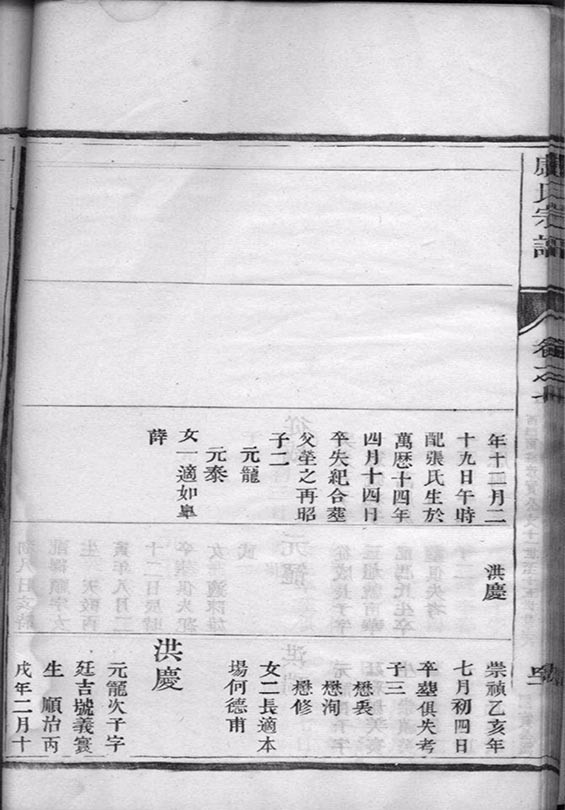 氏宗譜
卷之
年十二月二
十九日午時
配張氏生於
萬曆十四年
四月十四日
卒失紀合塟
父塋之再昭
子二
元龍
元泰
女一適如臯
薛
洪慶
崇禎乙亥年
七月初四日
卒塟俱失考
子三
懋袠
懋洵
懋修
女二長適本
場何德甫
洪慶
元龍次子字
廷吉號義寰
生 順治丙
戌年二月十